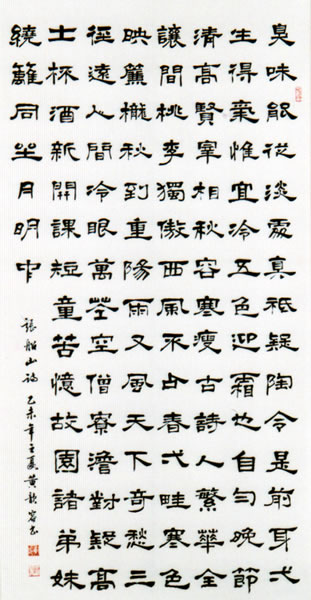 臭味能從淡處真祇疑陶令是前身弌
生得棄惟宜冷五色迎霜也自勻晚節
清高賢宰相秋容寒瘦古詩人繁華全
讓閒桃李獨傲西風不占春弌畦寒色
映簾櫳秋到重陽雨又風天下奇愁三
徑遠人間冷眼萬莖空僧寮澹對疑高
士杯酒新開課短童苦憶故園諸弟妹
繞籬同坐月明中
張船山詩乙未年立夏黃歆容書